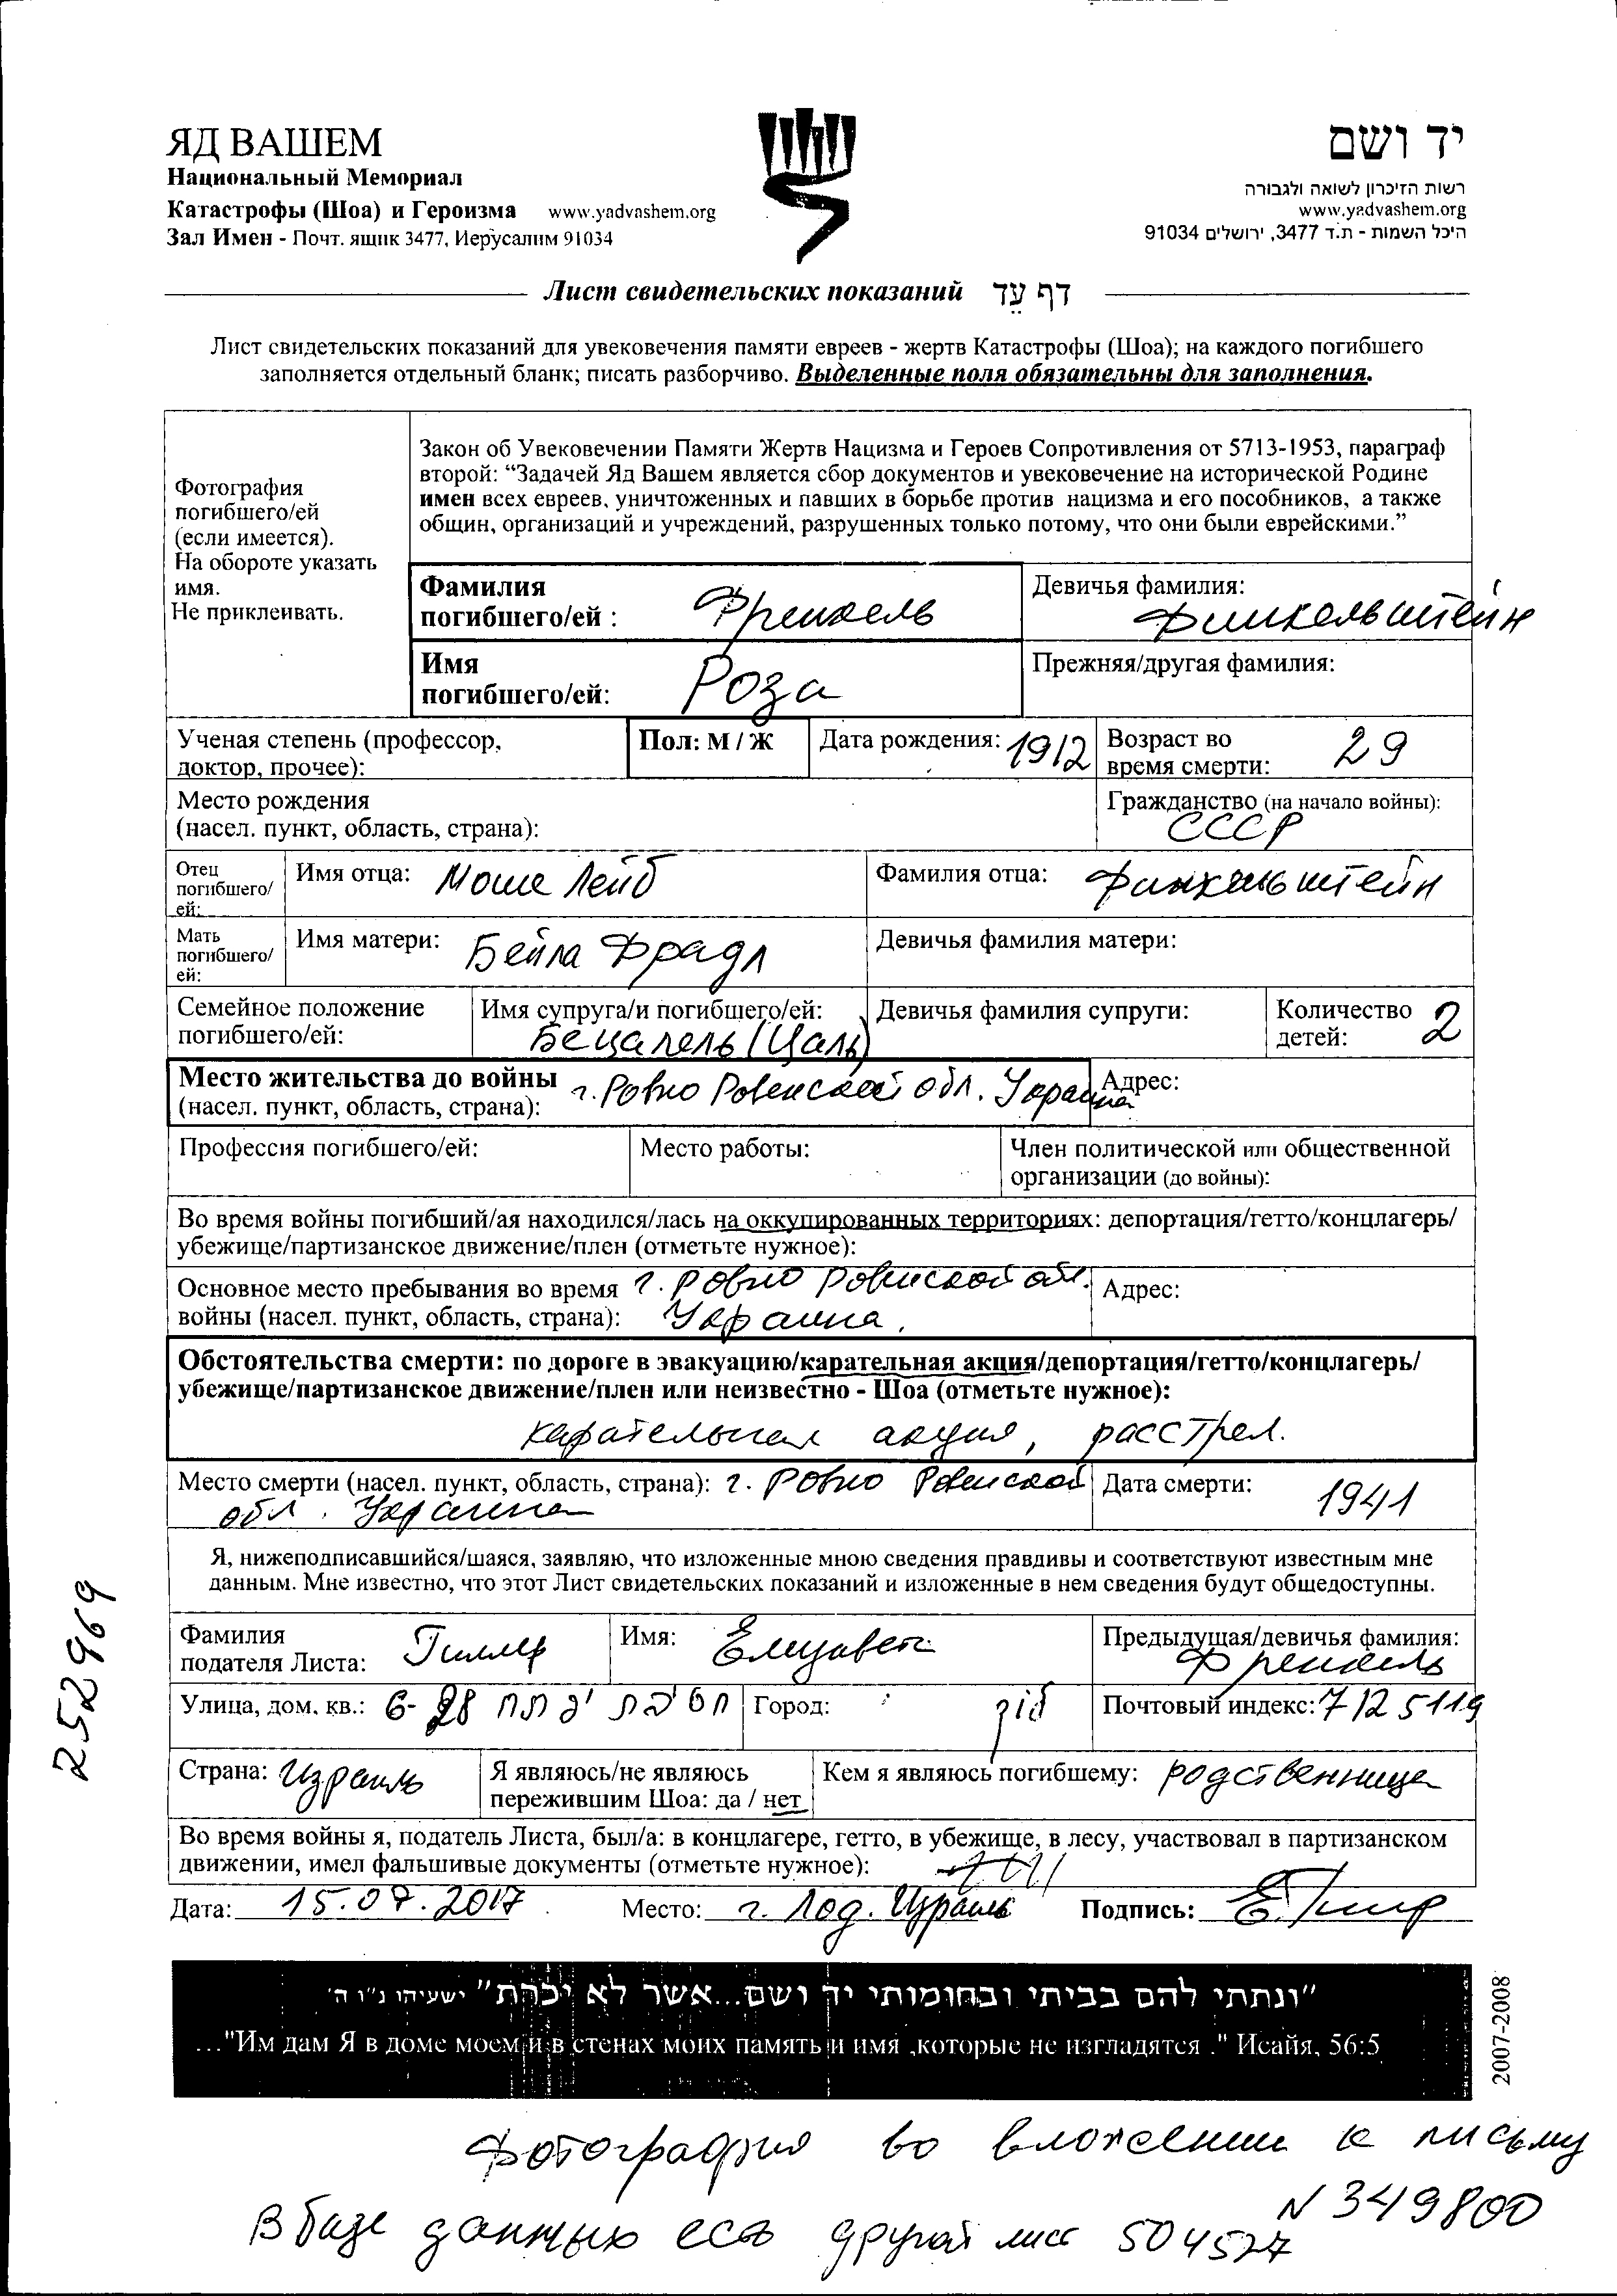 ЯД ВАШЕМ
Национальный Мемориал
Катастрофы (Шоа) и Героизма www.yadvashem.org
Зал Имен - Почт. ящик 3477, Иерусалим 91034
יד ושם
רשות הזיכרון לשואה ולגבורה
www.yadvashem.org
היכל השמות - ת.ד 3477, ירושלים 91034
Лист свидетельских показаний דף עֵד
Лист свидетельских показаний для увековечения памяти евреев - жертв Катастрофы (Шоа); на каждого погибшего
заполняется отдельный бланк; писать разборчиво. Выделенные поля обязательны для заполнения.
Фотография
погибшего/ей
(если имеется).
На обороте указать
имя.
Не приклеивать.
Закон об Увековечении Памяти Жертв Нацизма и Героев Сопротивления от 5713-1953, параграф
второй: “Задачей Яд Вашем является сбор документов и увековечение на исторической Родине
имен всех евреев, уничтоженных и павших в борьбе против нацизма и его пособников, а также
общин, организаций и учреждений, разрушенных только потому, что они были еврейскими.”
Фамилия
погибшего/ей : Френкель
Девичья фамилия:
Финкельштейн
Имя
погибшего/ей: Роза
Прежняя/другая фамилия:
Ученая степень (профессор,
доктор, прочее):
Пол: М / Ж
Дата рождения: 1912
Возраст во
время смерти: 29
Место рождения
(насел. пункт, область, страна):
Гражданство (на начало войны):
СССР
Отец
погибшего/
ей:
Имя отца: Моше Лейб
Фамилия отца: Финкельштейн
Мать
погибшего/
ей:
Имя матери: Бейла Фрадл
Девичья фамилия матери:
Семейное положение
погибшего/ей:
Имя супруга/и погибшего/ей:
Бецалель (Цаль)
Девичья фамилия супруги:
Количество
детей: 2
Место жительства до войны г. Ровно Ровенской обл. Украина
(насел. пункт, область, страна):
Адрес:
Профессия погибшего/ей:
Место работы:
Член политической или общественной
организации (до войны):
Во время войны погибший/ая находился/лась на оккупированных территориях: депортация/гетто/концлагерь/
убежище/партизанское движение/плен (отметьте нужное):
Основное место пребывания во время г. Ровно Ровенской обл.
войны (насел. пункт, область, страна): Украина.
Адрес:
Обстоятельства смерти: по дороге в эвакуацию/карательная акция/депортация/гетто/концлагерь/
убежище/партизанское движение/плен или неизвестно - Шоа (отметьте нужное):
карательная акция, расстрел.
Место смерти (насел. пункт, область, страна): г. Ровно Ровенской
обл. Украина
Дата смерти: 1941
Я, нижеподписавшийся/шаяся, заявляю, что изложенные мною сведения правдивы и соответствуют известным мне
данным. Мне известно, что этот Лист свидетельских показаний и изложенные в нем сведения будут общедоступны.
Фамилия
подателя Листа: Гиллер
Имя: Елизавета
Предыдущая/девичья фамилия:
Френкель
Улица, дом. кв.: 6-28
Город: לוד
Почтовый индекс: 7125119
Страна: Израиль
Я являюсь/не являюсь
пережившим Шоа: да / нет
Кем я являюсь погибшему: родственница
Во время войны я, податель Листа, был/а: в концлагере, гетто, в убежище, в лесу, участвовал в партизанском
движении, имел фальшивые документы (отметьте нужное):
Дата: 15.07.2017 Место: г. Лод. Израиль Подпись:
"ונתתי להם בביתי ובחומותי יד ושם...אשר לא יכרת" ישעיהו נ"ו ה'
..."Им дам Я в доме моем и в стенах моих память и имя ,которые не изгладятся ." Исайя, 56:5
2007-2008
252969
Фотография во вложении к письму
N 349800
В базе данных есть другой лист 504527